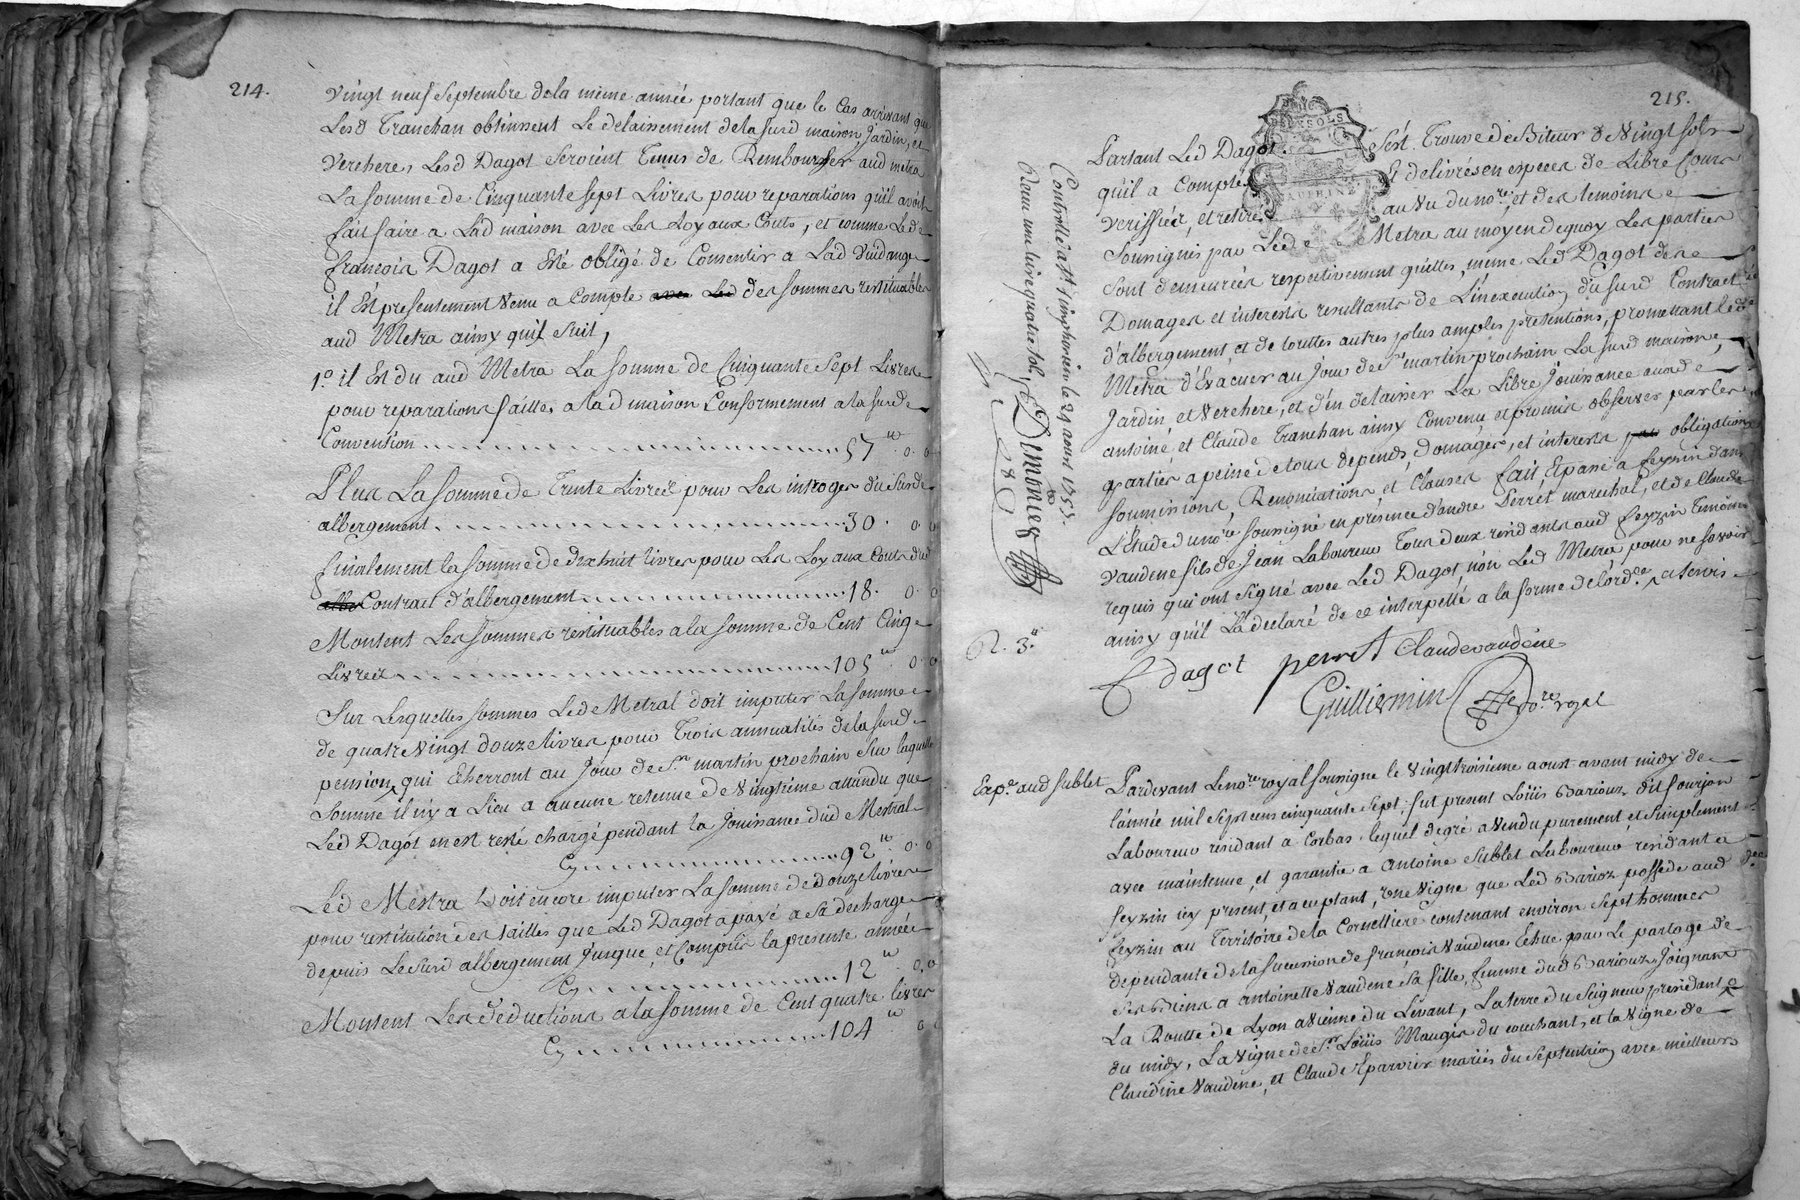 214.
vingt neuf septembre dela même année portant que le Cas arrivant que
Lesd Tranchan obtinssent Le delaissement dela susd maison Jardin, et
verchere, Lesd Dagot seroient Tenus de Rembourser aud metra
La somme de Cinquante sept Livres pour reparations qu'il avoit
fait faire a Lad maison avec Les Loyaux Couts, et comme Led
françois Dagot a été obligé de Consentir a Lad vuidange
il Est presentement venu a Compte des sommes restituables
aud Metra ainsy quil suit,
1.° il Est du aud Metra La somme de Cinquante sept Livres
pour reparations faittes a lad maison Conformement a la susde
Convention 57 0. 0
Plus La somme de Trente Livres pour Les introges du susde
albergement 30. 0 0
finalement la somme de dixhuit livres pour Les Loyaux Couts dud
Contrat d'albergement 18. 0. 0
Montent Les sommes restituables a la somme de Cent Cinq
Livres 105 0. 0
Sur Lesquelles sommes Led Metral doit imputer La somme
de quatre vingt douze livres pour Trois annuatités de la susde
pension, qui Echerront au Jour de St martin prochain sur laquelle
somme il n'y a Lieu a aucune retenue de vingtieme attendu que
Led Dagot en est resté chargé pendant la Jouissance dud Mestral
Cy 92 0. 0
Led Mestra Doit encore imputer La somme de douze livres
pour restitution des tailles que Led Dagot a payé a sa decharge
depuis Le susd albergement Jusque, et Compris la presente année
Cy 12 0. 0
Montent Les déductions a la somme de Cent quatre livres
Cy 104 0 0
215.
Partant Led Dagot s'est Trouvé debiteur de vingt sols
qu'il a Compté Et delivrés en especes de Libre Cours
verifiée, et retiré au vu du nore, et des temoins
soussignés par Led Metra au moyen dequoy Les parties
sont demeurées respectivement quittes, meme Led Dagot des
Domages et interests resultants de L'inexecution du susd Contract
d'albergement, et de touttes autres plus amples pretentions, promettant led
Metra d'Evacuer au Jour de St martin prochain La susd maison,
Jardin, et verchere, et d'en delaisser La Libre Jouissance auxd
antoine, et Claude Tranchan ainsy Convenu et promis observer par les
parties a peine de tous depends, domages, et interests obligations
soumissions, Renonciations, et Clauses fait, Et passé a feyzin dans
L'Etude du nore soussigné en présence d'andré Perret marechal, et de Claude
vaudene fils de Jean Laboureur Tous deux residants aud feyzin Temoins
requis qui ont signé avec Led Dagot, non Led Metra pour ne savoir
ainsy qu'il L'a declaré de ce interpellé a la forme de l'ordce
Dagot perret Claude vaudene
Guilliermin nore royal
Controllé a St simphorien le 29 aoust 1755
Reçu une livre quatre sols
R. 3.
Expé aud Sublet
Pardevant Le nore royal soussigné le vingt troisieme aoust avant midy de
l'année mil sept cens cinquante sept: fut present Loüis Barioux dit sourjon
Laboureur residant a Corbas lequel degré a vendu purement, et simplement
avec maintenue, et garantie a antoine Sublet Laboureur residant a
feyzin icy present, et acceptant, une vigne que Led Barioz possede aud
feyzin au Territoire de la Cornelliere contenant environ sept hommes
dependante de la succession de françois vaudene Echue par Le partage de
ses Biens a antoinette vaudene sa fille, femme dud Barioux, Joignant
La Routte de Lyon a vienne du Levant, La terre du seigneur president
du midy, La vigne de Sr Loüis Maugis du couchant, et la vigne de
Claudine vaudene, et Claude Eparvier mariés du septentrion avec meilleurs